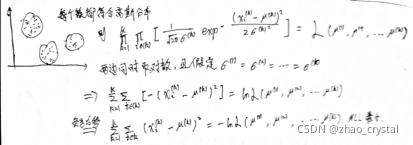 每个数据符合高斯分布
则 ∏_{k=1}^{k} ∏_{i∈(k)} [ 1/(√2π σ^{(k)}) exp - (x_i^{(k)} - μ^{(k)})² / 2σ^{(k)²} ] = L(μ^{(1)}, μ^{(2)}, ... μ^{(k)})
两边同时取对数, 且假定 σ^{(1)} = σ^{(2)} = ... = σ^{(k)}
⇒ ∑_{k=1}^{k} ∑_{i∈(k)} [ -(x_i^{(k)} - μ^{(k)})² ] = ln L(μ^{(1)}, μ^{(2)}, ... μ^{(k)})
⇒ ∑_{k=1}^{k} ∑_{i∈(k)} (x_i^{(k)} - μ^{(k)})² = -ln L(μ^{(1)}, μ^{(2)}, ... μ^{(k)})
CSDN @zhao_crystal